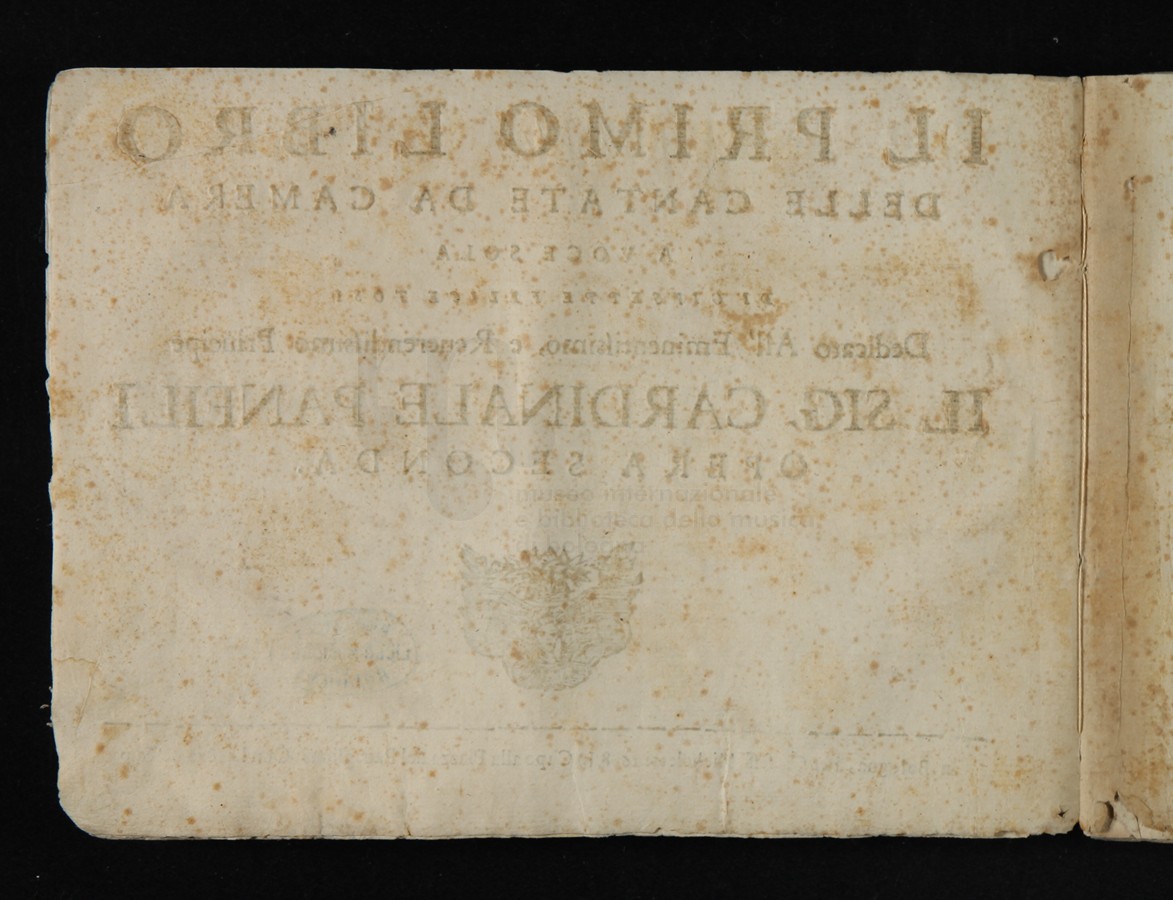 IL PRIMO LIBRO
DELLE CANTATE DA CAMERA
A VOCE SOLA
DI GIUSEPPE FELICE TOSI
Dedicato All' Eminentissimo, e Reuerendissimo Principe
IL SIG. CARDINALE PANFILI
OPERA SECONDA
museo internazionale
e biblioteca della musica